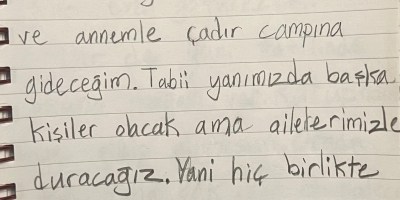 ve annemle çadır campına
gideceğim. Tabii yanımızda başka
kişiler olacak ama ailelerimizle
duracağız. Yani hiç birlikte